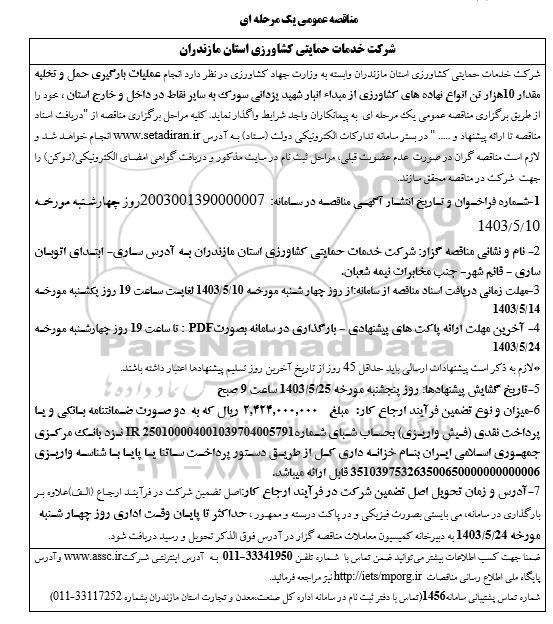 مناقصه عمومی یک مرحله ای
شرکت خدمات حمایتی کشاورزی استان مازندران
شرکت خدمات حمایتی کشاورزی استان مازندران وابسته به وزارت جهاد کشاورزی در نظر دارد انجام عملیات بارگیری حمل و تخلیه
مقدار 10هزار تن انواع نهاده های کشاورزی از مبداء انبار شهید یزدانی سورک به سایر نقاط در داخل و خارج استان ، خود را
از طریق برگزاری مناقصه عمومی یک مرحله ای به پیمانکاران واجد شرایط واگذار نماید. کلیه مراحل برگزاری مناقصه از "دریافت اسناد
مناقصه تا ارائه پیشنهاد و ..... " در بستر سامانه تدارکات الکترونیکی دولت (ستاد) به آدرس www.setadiran.ir انجام خواهد شد و
لازم است مناقصه گران در صورت عدم عضویت قبلی، مراحل ثبت نام در سایت مذکور و دریافت گواهی امضای الکترونیکی(توکن) را
جهت شرکت در مناقصه محقق سازند.
1-شماره فراخوان و تاریخ انتشار آگهی مناقصه در سامانه: 2003001390000007روز چهارشنبه مورخه
1403/5/10
2- نام و نشانی مناقصه گزار: شرکت خدمات حمایتی کشاورزی استان مازندران به آدرس ساری- ابتدای اتوبان
ساری - قائم شهر- جنب مخابرات نیمه شعبان.
3-مهلت زمانی دریافت اسناد مناقصه از سامانه:از روز چهار شنبه مورخه 1403/5/10 لغایت ساعت 19 روز یکشنبه مورخه
1403/5/14
4- آخرین مهلت ارائه پاکت های پیشنهادی - بارگذاری در سامانه بصورتPDF : تا ساعت 19 روز چهارشنبه مورخه
1403/5/24
*لازم به ذکر است پیشنهادات ارسالی باید حداقل 45 روز از تاریخ آخرین روز تسلیم پیشنهادها اعتبار داشته باشند.
5-تاریخ گشایش پیشنهادها: روز پنجشنبه مورخه 1403/5/25 ساعت 9 صبح
6-میزان و نوع تضمین فرآیند ارجاع کار: مبلغ ۲,۴۲۴,۰۰۰,۰۰۰ ریال که به دو صورت ضمانتنامه بانکی و یا
پرداخت نقدی (فیش واریزی) بحساب شبای شمارهIR 250100004001039704005791 نزد بانک مرکزی
جمهوری اسلامی ایران بنام خزانه داری کل از طریق دستور پرداخت ساتنا یا پایا با شناسه واریزی
351039753263500650000000000006 قابل ارائه میباشد.
7-آدرس و زمان تحویل اصل تضمین شرکت در فرآیند ارجاع کار:اصل تضمین شرکت در فرآیند ارجاع (الف)علاوه بر
بارگذاری در سامانه، می بایستی بصورت فیزیکی و در پاکت دربسته و ممهور ، حداکثر تا پایان وقت اداری روز چهار شنبه
مورخه 1403/5/24 به دبیرخانه کمیسیون معاملات مناقصه گزار در آدرس فوق الذکر تحویل و رسید دریافت شود.
ضمنا جهت کسب اطلاعات بیشتر می‌توانید ضمن تماس با شماره تلفن 33341950-011 به آدرس اینترنتی شرکتwww.assc.ir وآدرس
پایگاه ملی اطلاع رسانی مناقصات http://iets/mporg.ir نیز مراجعه فرمائید.
شماره تماس پشتیبانی سامانه1456(تماس با دفتر ثبت نام در سامانه اداره کل صنعت،معدن و تجارت استان مازندران بشماره 33117252-011)
ParsNamadData